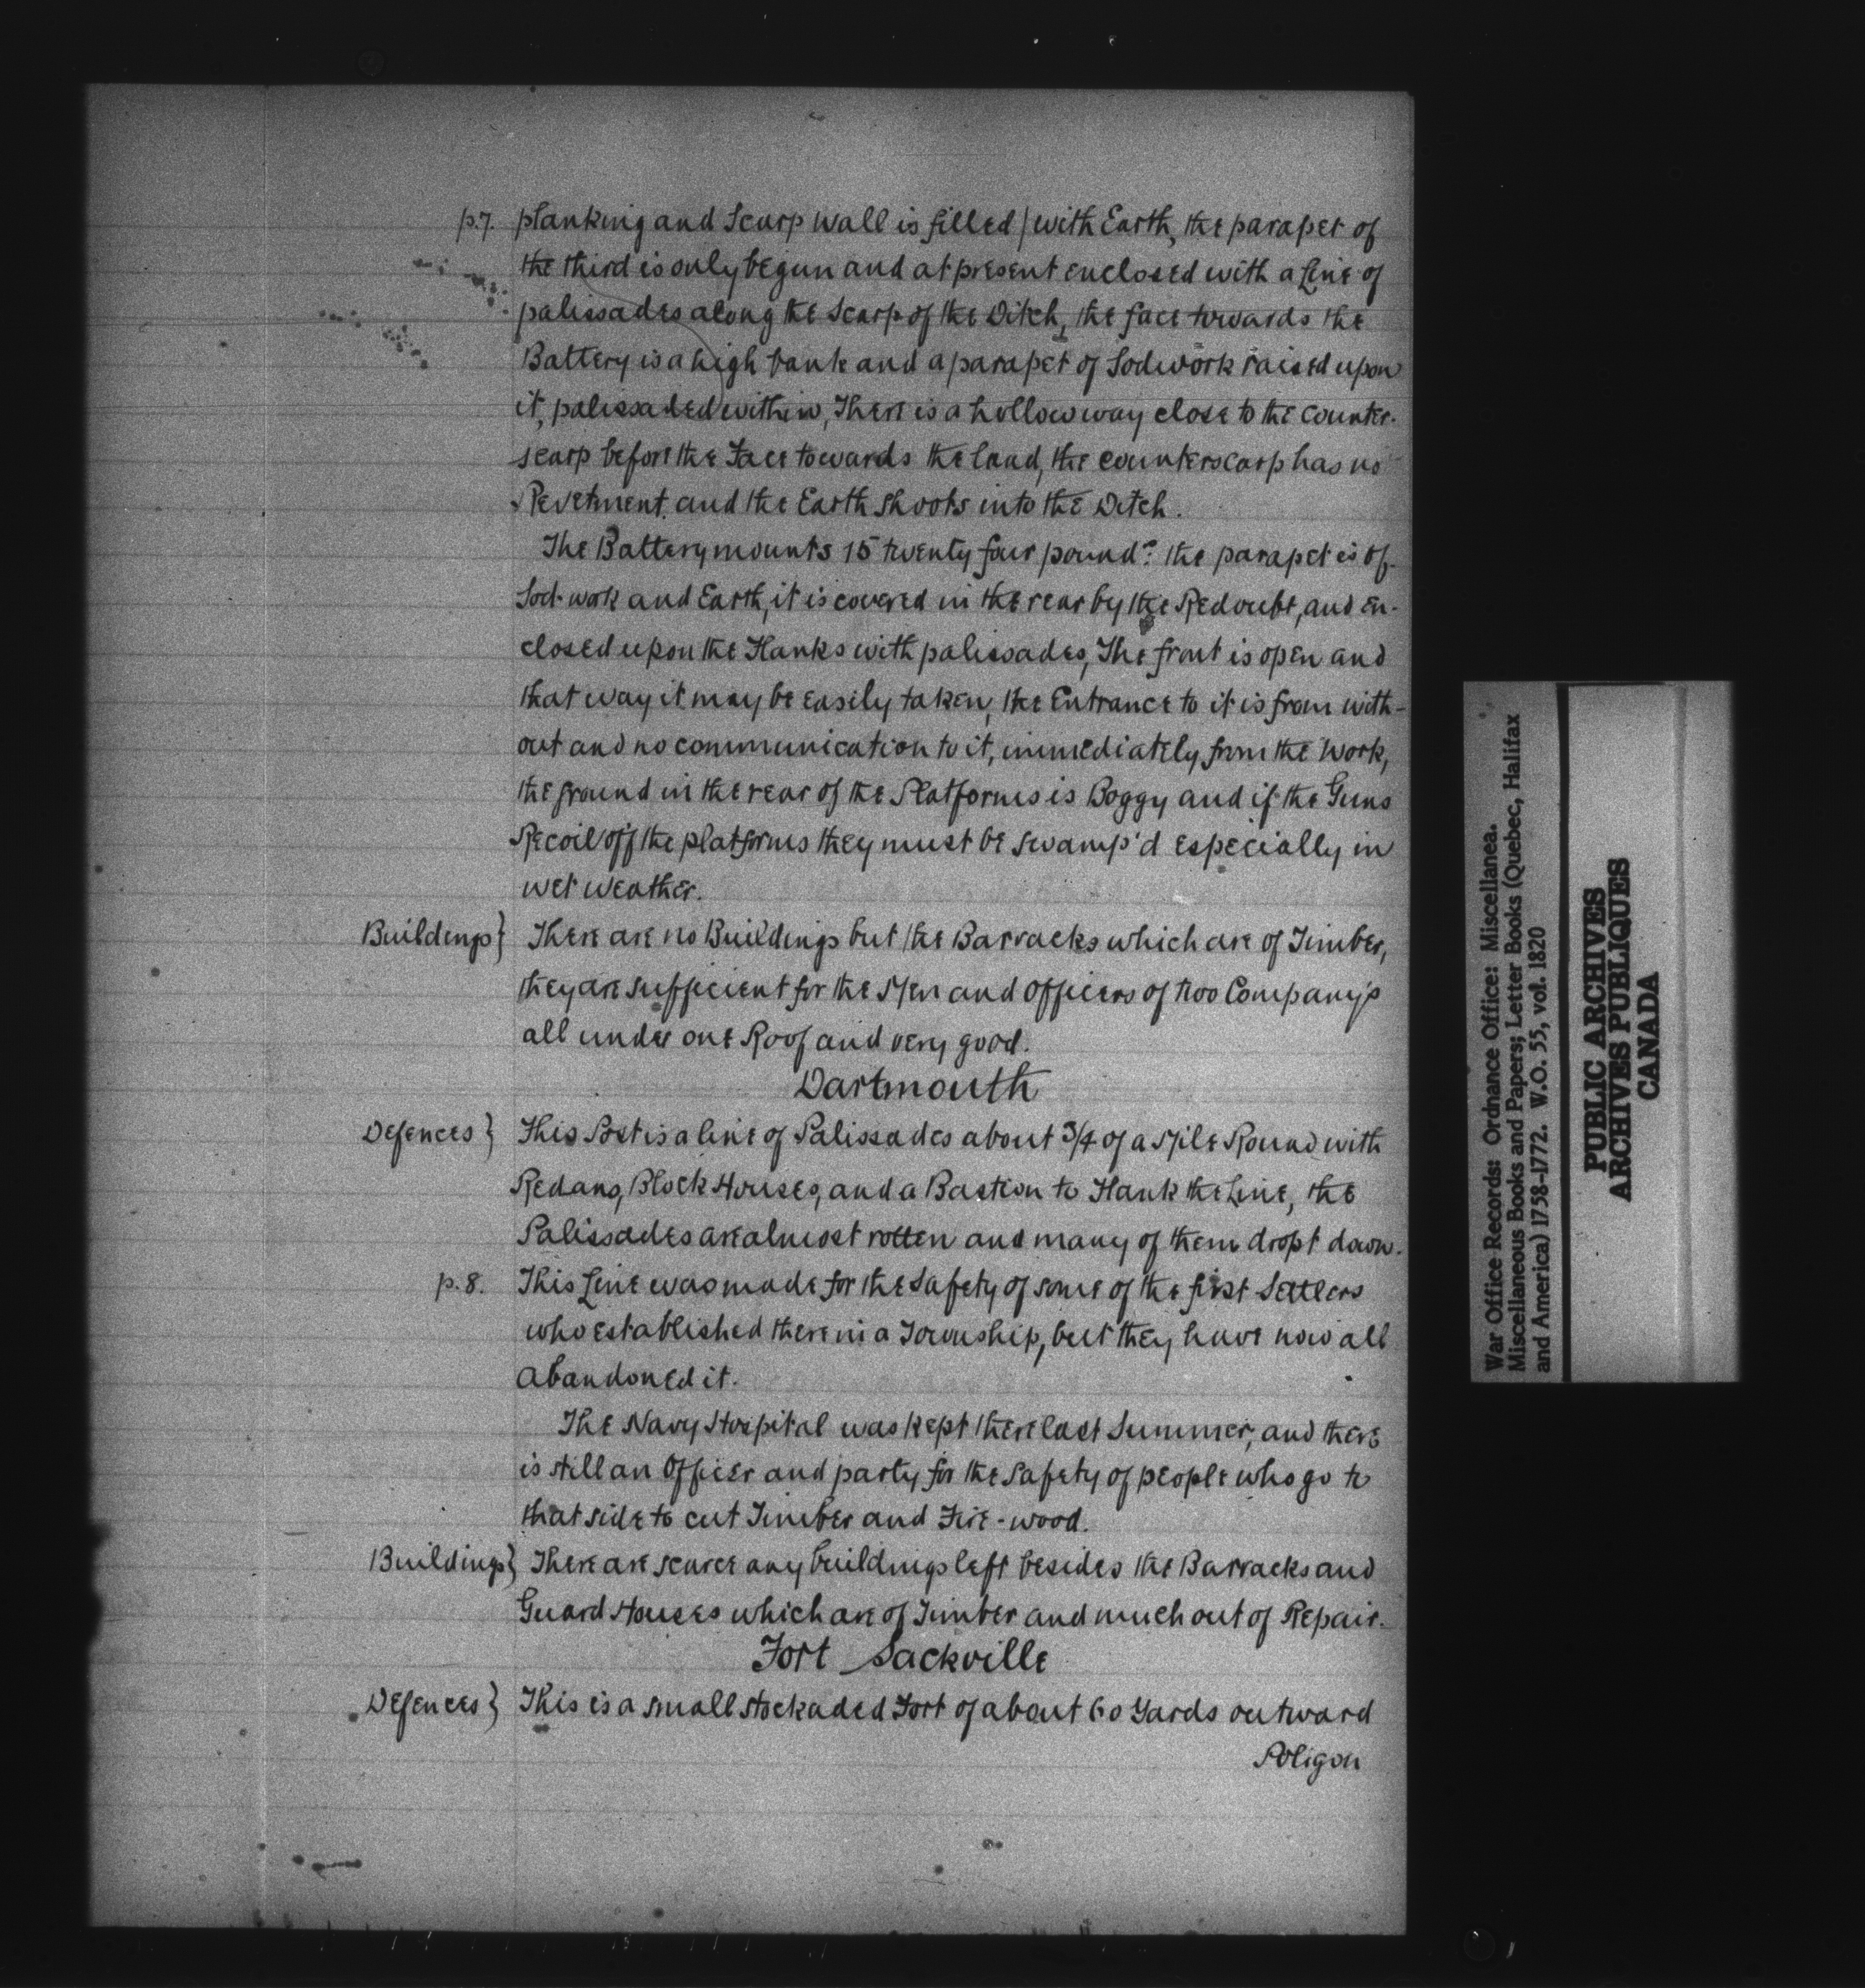 p.7. planking and Scarp Wall is filled / with Earth, the parapet of
the third is only begun and at present enclosed with a Line of
palissades along the Scarp of the Ditch, the face towards the
Battery is a high bank and a parapet of Sodwork raised upon
it, palissaded within, There is a hollow way close to the counter-
scarp before the Face towards the land, the counterscarp has no
Revetment, and the Earth shoots into the Ditch.
The Battery mounts 15 twenty four pound.rs the parapet is of
Sod-work and Earth, it is covered in the rear by the Redoubt, and en-
closed upon the Flanks with palissades, The front is open and
that way it may be easily taken, the Entrance to it is from with-
out and no communication to it, immediately from the Work,
the ground in the rear of the Platforms is Boggy and if the Guns
Recoil off the platforms they must be swamp'd especially in
wet weather.
Buildings} There are no Buildings but the Barracks which are of Timber,
they are sufficient for the Men and Officers of two Company's
all under one Roof and very good.
Dartmouth
Defences} This Post is a line of Palissades about 3/4 of a Mile Round with
Redans, Block Houses, and a Bastion to Flank the Line, the
Palissades are almost rotten and many of them dropt down.
p.8. This Line was made for the Safety of some of the first Settlers
who established there in a Township, but they have now all
abandoned it.
The Navy Hospital was kept there last Summer, and there
is still an Officer and party for the Safety of people who go to
that side to cut Timber and Fire-wood.
Buildings} There are scarce any buildings left besides the Barracks and
Guard Houses which are of Timber and much out of Repair.
Fort Sackville
Defences} This is a small stockaded Fort of about 60 Yards outward
Poligon
War Office Records: Ordnance Office: Miscellanea.
Miscellaneous Books and Papers; Letter Books (Quebec, Halifax
and America) 1758-1772. W.O. 55, vol. 1820
PUBLIC ARCHIVES
ARCHIVES PUBLIQUES
CANADA